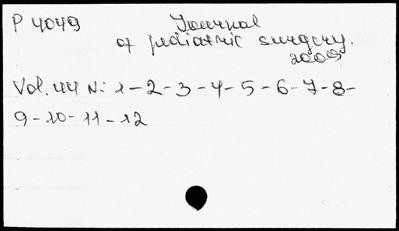 P 4049 Journal
of pediatric surgery.
2009
Vol. 44 N: 1-2-3-4-5-6-7-8-
9-10-11-12